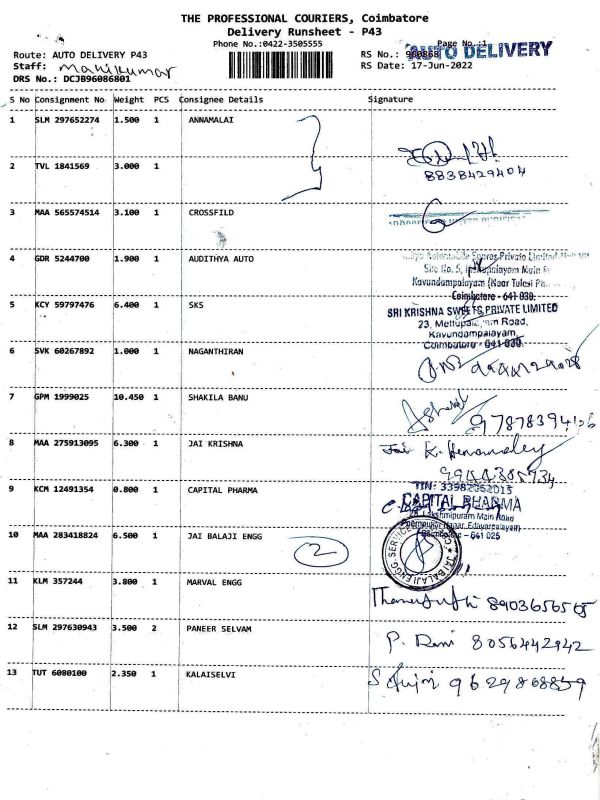 THE PROFESSIONAL COURIERS, Coimbatore
Delivery Runsheet - P43
Phone No.:0422-3505555
Page No.:1
AUTO DELIVERY
Route: AUTO DELIVERY P43
RS No.:
Staff: Manikumar
RS Date: 17-Jun-2022
DRS No.: DCJB96086801
S No Consignment No Weight PCS Consignee Details Signature
1 SLM 297652274 1.500 1 ANNAMALAI
2 TVL 1841569 3.000 1
8838429404
3 MAA 565574514 3.100 1 CROSSFILD
4 GDR 5244700 1.900 1 AUDITHYA AUTO
Private Limited
Site No. 5,
Kavundampalayam (Near Tulasi
Coimbatore - 641 030.
5 KCY 59797476 6.400 1 SKS
SRI KRISHNA SWEETS PRIVATE LIMITED
23, Mettupalayam Road,
Kavundampalayam,
Coimbatore - 641 030.
6 SVK 60267892 1.000 1 NAGANTHIRAN
7 GPM 1999025 10.450 1 SHAKILA BANU
8 MAA 275913095 6.300 1 JAI KRISHNA
9 KCM 12491354 0.800 1 CAPITAL PHARMA
TIN: 33982062015
CAPITAL PHARMA
Lakshmipuram Main Road
Nagar, Edayarpalayam
Coimbatore - 641 025
10 MAA 283418824 6.500 1 JAI BALAJI ENGG
2
JAI BALAJI ENGG SERVICE
11 KLM 357244 3.800 1 MARVAL ENGG
8903656565
12 SLM 297630943 3.500 2 PANEER SELVAM
P. Rani 8056442942
13 TUT 6080100 2.350 1 KALAISELVI
9629868859